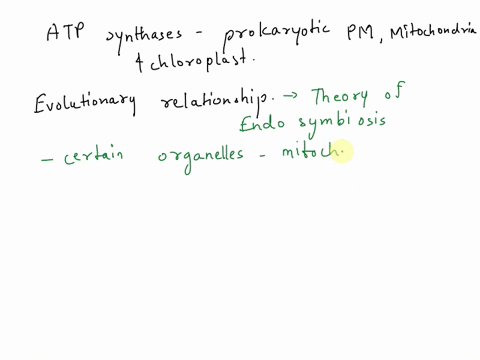 ATP synthases - prokaryotic PM, Mitochondria
& chloroplast.
Evolutionary relationship. → Theory of
Endo symbiosis
- certain organelles - mitoch.